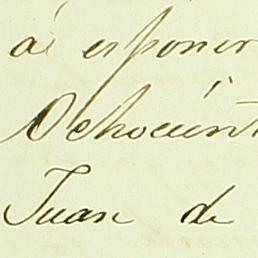 á esponer
Ochocient
Juan de